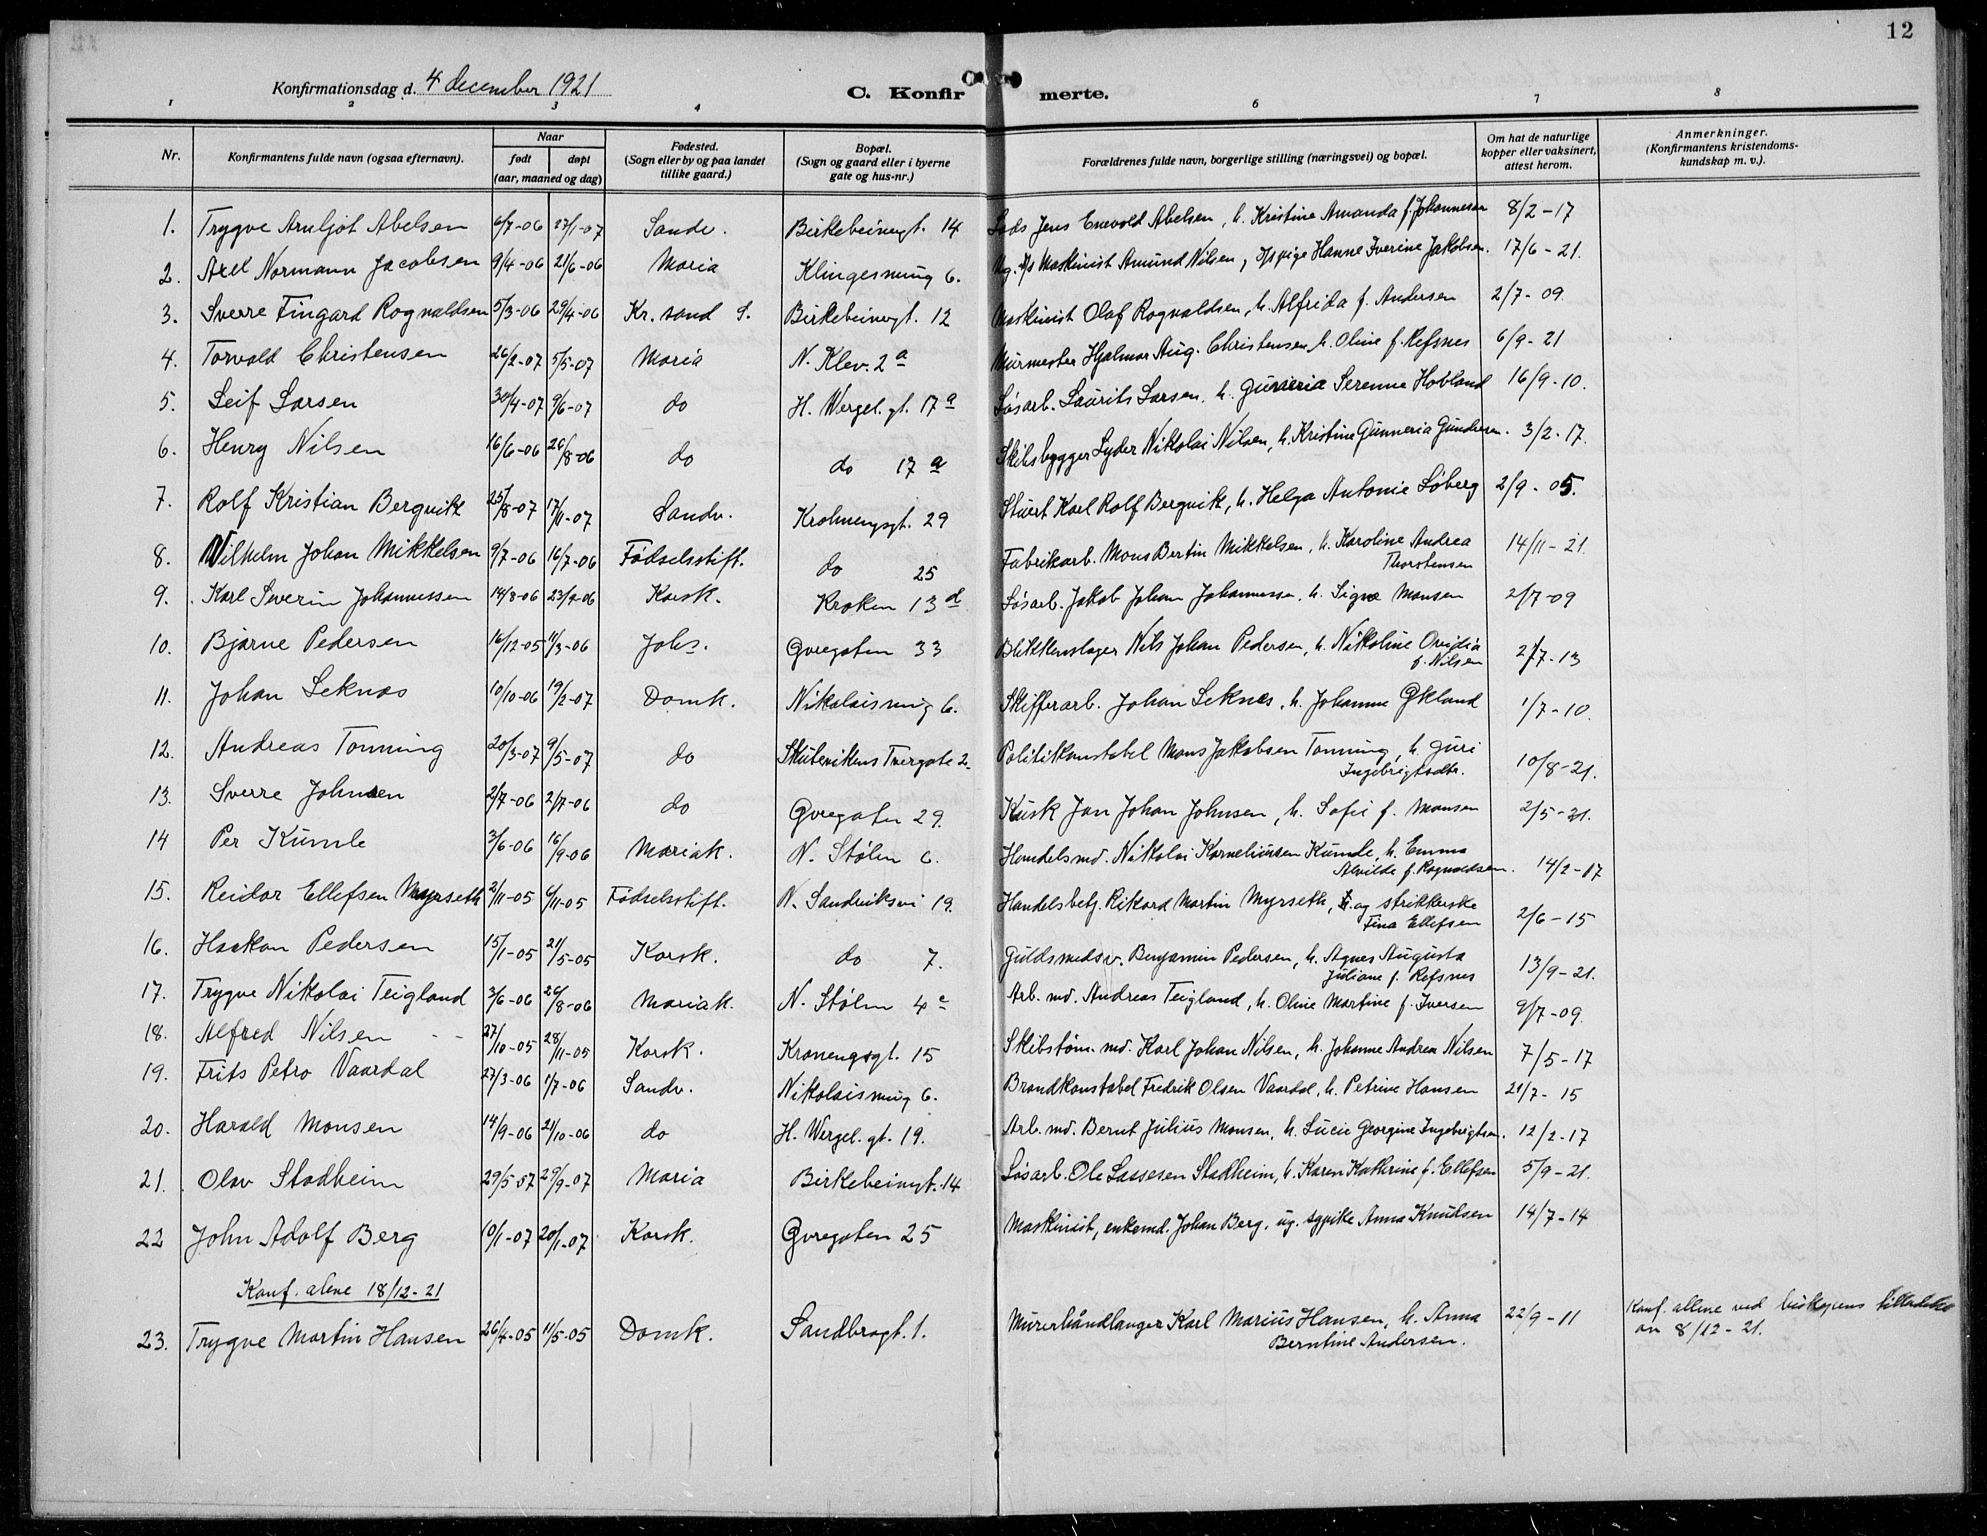 12
Konfirmationsdag d. 4 december 1921
C. Konfirmerte.
1 2 3 4 6 7 8
Nr. | Konfirmantens fulde navn (ogsaa efternavn). | Naar født døpt (aar, maaned og dag) | Fødested. (Sogn eller by og paa landet tillike gaard.) | Bopæl. (Sogn og gaard eller i byerne gate og hus-nr.) | Forældrenes fulde navn, borgerlige stilling (næringsvei) og bopæl. | Om hat de naturlige kopper eller vaksinert, attest herom. | Anmerkninger. (Konfirmantens kristendomskundskap m. v.).
1. Trygve Arnljot Abelsen 6/7-06 27/1-07 Sandv. Birkebeinergt. 14 Lods Jens Enevold Abelsen, h. Kristine Amanda f. Johannesen 8/2-17
2. Axel Normann Jacobsen 9/4-06 21/6-06 Maria Klingesmug 6. Ug. Maskinist Amund Nilsen, pige Hanne Iverine Jakobsen. 17/6-21.
3. Sverre Fingard Rognaldsen 5/3-06 29/4-06 Kr. sand S. Birkebeinergt. 12 Maskinist Olaf Rognaldsen, h. Alfrida f. Andersen 2/7-09
4. Torvald Christensen 26/2-07 5/5-07 Maria N. Klev. 2a Murmester Hjalmar Aug. Christensen h. Oline f. Refsnes 6/9-21
5. Leif Larsen 30/4-07 9/6-07 do H. Wergel. gt. 17a Løsarb. Laurits Larsen, h. Gurieria Serenne Hovland 16/9-10.
6. Henry Nilsen 16/6-06 26/8-06 do do 17a Skibsbygger Lyder Nikolai Nilsen, h. Kristine Gunneria Gundersen. 3/2-17.
7. Rolf Kristian Bergvik 25/8-07 17/11-07 Sandv. Krohnengsgt. 29 Stuert Karl Rolf Bergvik, h. Helga Antonie Søberg 2/9-05.
8. Vilhelm Johan Mikkelsen 9/7-06 16/7-06 Fødselsstift. do 25 Fabrikarb. Mons Bertin Mikkelsen, h. Karoline Andrea
Thorstensen 14/11-21.
9. Karl Severin Johannessen 14/8-06 23/9-06 Korsk. Kroken 13d Løsarb. Jakob Johan Johannessen, h. Signe Monsen 2/7-09
10. Bjarne Pedersen 16/12-05 11/3-06 Johs. Øvregaten 33 Blikkenslager Nils Johan Pedersen, h. Nikoline Ovidia
f. Nilsen 2/7-13
11. Johan Seknæs 10/10-06 19/2-07 Domk. Nikolaismug 6. Skifferarb. Johan Seknes, h. Johanne Økland 1/7-10.
12. Andreas Tonning 20/3-07 9/5-07 do Skutevikens Tvergate 2. Politikonstabel Mons Jakobsen Tonning, h. Guri
Ingebrigtsdtr. 10/8-21.
13. Sverre Johnsen 2/7-06 2/7-06 do Øvregaten 29. Kusk Jan Johan Johnsen, h. Sofie f. Monsen 2/5-21.
14 Per Kumle 3/6-06 16/9-06 Mariak. N. Stølen 6. Handelsmd. Nikolai Korneliussen Kumle, h. Emma
Alvilde f. Rognaldsen. 14/2-17
15. Reidar Ellefsen Myrseth 2/11-05 6/11-05 Fødselsstift. N. Sandviksvei 19. Handelsbetj. Rikard Martin Myrseth, h. og strikkerske
Fina Ellefsen 2/6-15
16. Haakon Pedersen 15/1-05 21/5-05 Korsk. do 7. Guldsmedsv. Benjamin Pedersen, h. Agnes Augusta
Juliane f. Refsnes 13/9-21.
17. Trygve Nikolai Teigland 3/6-06 26/8-06 Mariak. N. Stølen 4c Arb. md. Andreas Teigland, h. Oline Martine f. Iversen 9/7-09.
18. Alfred Nilsen 27/10-05 28/11-05 Korsk. Kronengsgt. 15 Skibstøm. md. Karl Johan Nilsen, h. Johanne Andrea Nilsen 7/5-17
19. Frits Petro Vaardal 27/3-06 1/7-06 Sandv. Nikolaismug 6. Brandkonstabel Fredrik Olsen Vaardal, h. Petrine Hansen 21/7-15
20. Harald Monsen 14/9-06 21/10-06 do H. Wergel. gt. 19. Arb. md. Bernt Julius Monsen, h. Lucie Georgine Ingebrigtsen. 12/2-17
21. Olav Stadheim 29/5-07 29/9-07 Maria Birkebeinergt. 14 Løsarb. Ole Lassesen Stadheim, h. Karen Kathrine f. Ellefsen 5/9-21.
22 John Adolf Berg 10/1-07 20/1-07 Korsk. Øvregaten 25 Maskinist, enkemd. Johan Berg, ug. sypike Anna Knudsen 14/7-14
Konf. alene 18/12-21
23. Trygve Martin Hansen 26/4-05 11/5-05 Domk. Sandbrogt. 1. Murerhåndlanger Karl Marius Hansen, h. Anna
Berntine Andersen. 22/9-11 Konf. allene ved biskopens tilladelse
av 8/12-21.